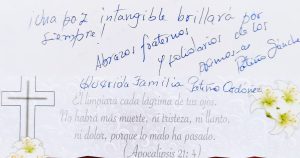 ¡Una paz intangible brillará por
siempre!
Abrazos fraternos
y solidarios de los
Patiño Sánchez
Querida Familia Patiño Ordóñez
Él limpiará cada lágrima de tus ojos.
No habrá más muerte, ni tristeza, ni llanto,
ni dolor, porque lo malo ha pasado.
(Apocalipsis 21: 4)